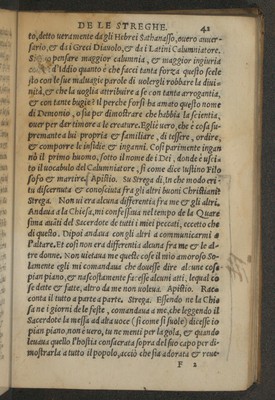 DE LE STREGHE. 42
to, detto ueramente dagli Hebrei Sathanasso, ouero auuer-
sario, & da i Greci Diauolo, & da i Latini Calumniatore.
pensare maggior calumnia, & maggior ingiuria
d'Iddio quanto è che facci tanta forza questo scele
sto con le sue maluagie parole di uolergli robbare la diui-
nità, & che la uoglia attribuire a se con tanta arrogantia,
& con tante bugie? Il perche forsi ha amato questo nome
di Demonio, o sia per dimostrare che habbia la scientia,
ouer per der timore a le creature. Egli è uero, che è cosa su-
premante a lui propria & familiare, di tessere, ordire,
& comporre le insidie & inganni. Così parimente ingan
nò il primo huomo, sotto il nome de i Dei, donde è usci-
to il uocabulo del Calumniatore, sì come dice Iustino Filo
sofo & martire. Apistio. Su Strega dì, in che modo eri
tu discernuta & conosciuta fra gli altri buoni Christiani?
Strega. Non ui era alcuna differentia fra me & gli altri.
Andaua a la Chiesa, mi confessaua nel tempo de la Quare
sima auāti del Sacerdote de tutti i miei peccati, eccetto che
di questo. Dipoi andaua con gli altri a communicarmi a
l'altare. Et così non era differentia alcuna fra me & le al-
tre donne. Non uietaua me queste cose il mio amoroso So-
lamente egli mi comandaua che douesse dire alcune cose
pian piano, & nascosamente facesse alcuni atti, lequal co
se dette & fatte, altro da me non uoleua. Apistio. Rac-
conta il tutto a parte a parte. Strega. Essendo ne la Chie
sa ne i giorni de le feste, comandaua a me, che leggendo il
Sacerdote la messa ad alta uoce (sì come si suole) dicesse io
pian piano, non è uero, tu ne menti per la gola, & quando
leuaua quello l'hostia consacrata sopra del suo capo per di-
mostrarla a tutto il popolo, acciò che sia adorata & reue-
F 2